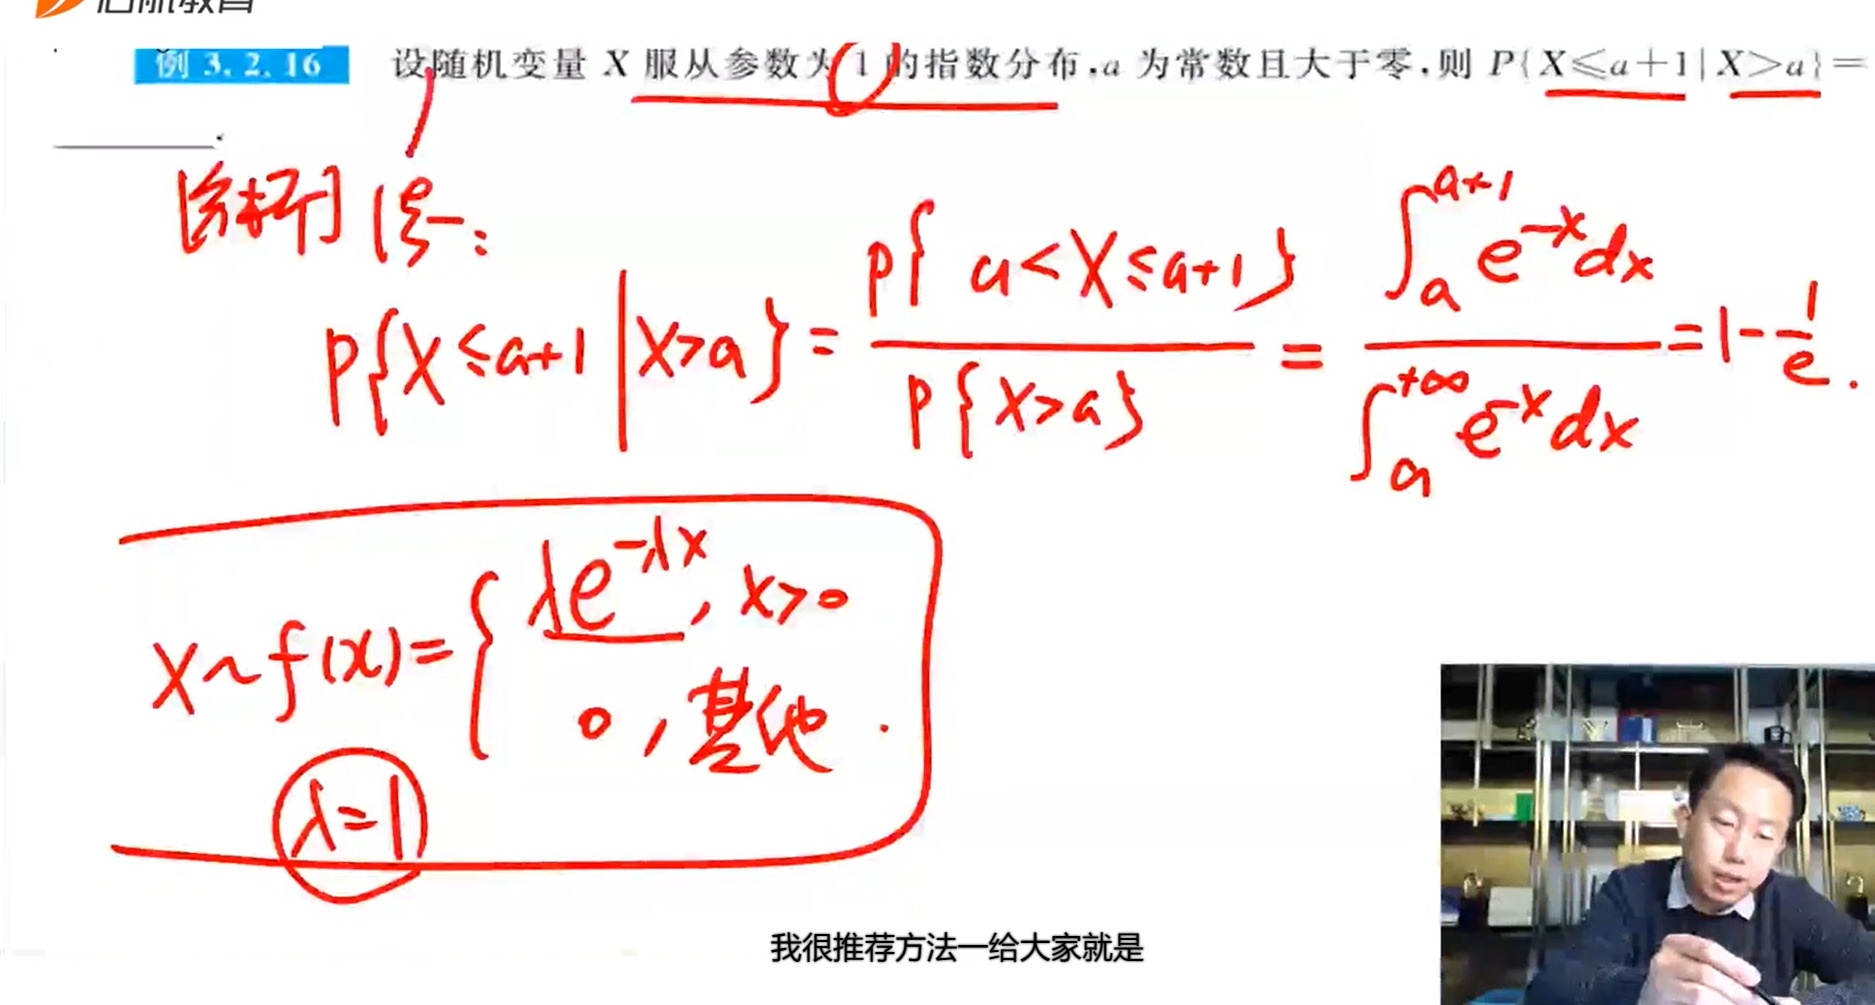 启航教育
例 3.2.16 设随机变量 X 服从参数为 1 的指数分布,a 为常数且大于零,则 P{X≤a+1|X>a}=
________.
[解析] 法一:
P{X≤a+1|X>a} = P{a<X≤a+1} / P{X>a} = ∫_a^{a+1} e^{-x}dx / ∫_a^{+∞} e^{-x}dx = 1-1/e.
X~f(x)={ λe^{-λx}, x>0
0, 其他.
λ=1
我很推荐方法一给大家就是